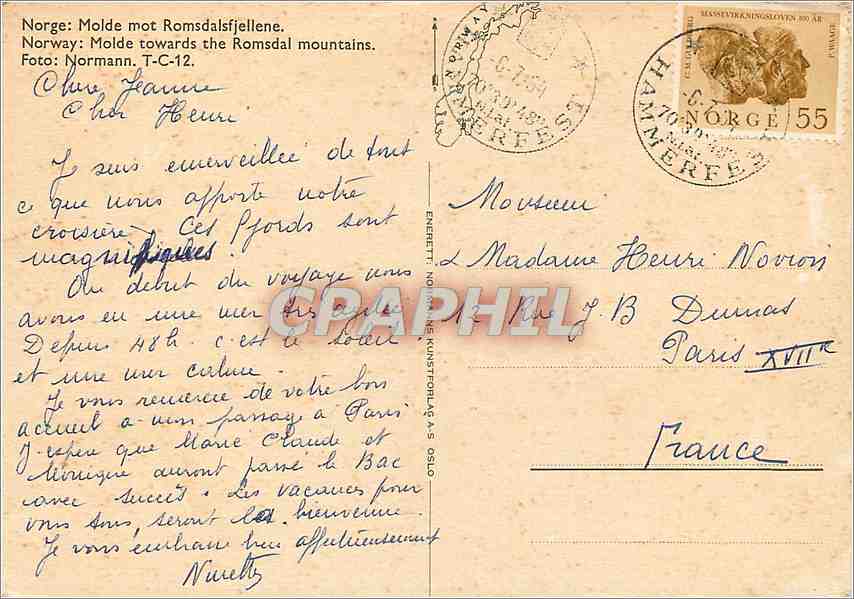 Norge: Molde mot Romsdalsfjellene.
Norway: Molde towards the Romsdal mountains.
Foto: Normann. T-C-12.
Chère Jeanne
Cher Henri
Je suis emerveillée de tout
ce que nous apporte notre
croisière. Ces fjords sont
magnifiques.
Au debut du voyage nous
avons eu une mer très agitée
Depuis 48h. c'est le soleil
et une mer calme.
Je vous remercie de votre bon
accueil a mon passage à Paris
J'espère que Marie Claude et
Monique auront passé le Bac
avec succès. Les vacances pour
vous tous, seront les bienvenue.
Je vous embrasse bien affectueusement
ENERETT: NORMANNS KUNSTFORLAG A-S OSLO
CPAPHIL
HAMMERFEST
70°39'48"
G.M. GULDBERG
MASSEVIRKNINGSLOVEN 100 ÅR
P. WAAGE
NORGE 55
HAMMERFEST
70°39'48"
Monsieur
& Madame Henri Novion
13 Rue J.B Dumas
Paris XVIIe
France